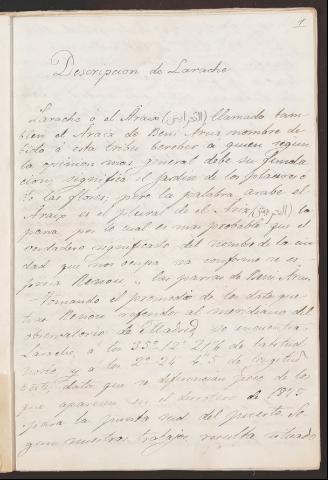 1
Descripcion de Larache
Larache ó el Araix (العرايش) llamado tam-
bien el Araix de Beni Arus nombre de-
bido á esta tribu bereber a quien segun
la opinion mas general debe su funda-
cion, significa el jardin de los placeres ó
de las flores; pero la palabra arabe el
Araix es el plural de el Arix la
parra por lo cual es mas probable que el
verdadero significado del nombre de la ciu-
dad que nos ocupa sea conforme
Renou, las parras de Beni Arus.
Tomando el promedio de los datos que
trae Renou referidos al meridiano del
observatorio de Madrid, se encuentra
Larache, á los 35° 12' de latitud
norte y á los 2° 24' de longitud
oeste; datos que se diferencian poco de los
que aparecen en el derrotero de
para la punta sud del puerto. Se-
gun nuestros trabajos resulta situada